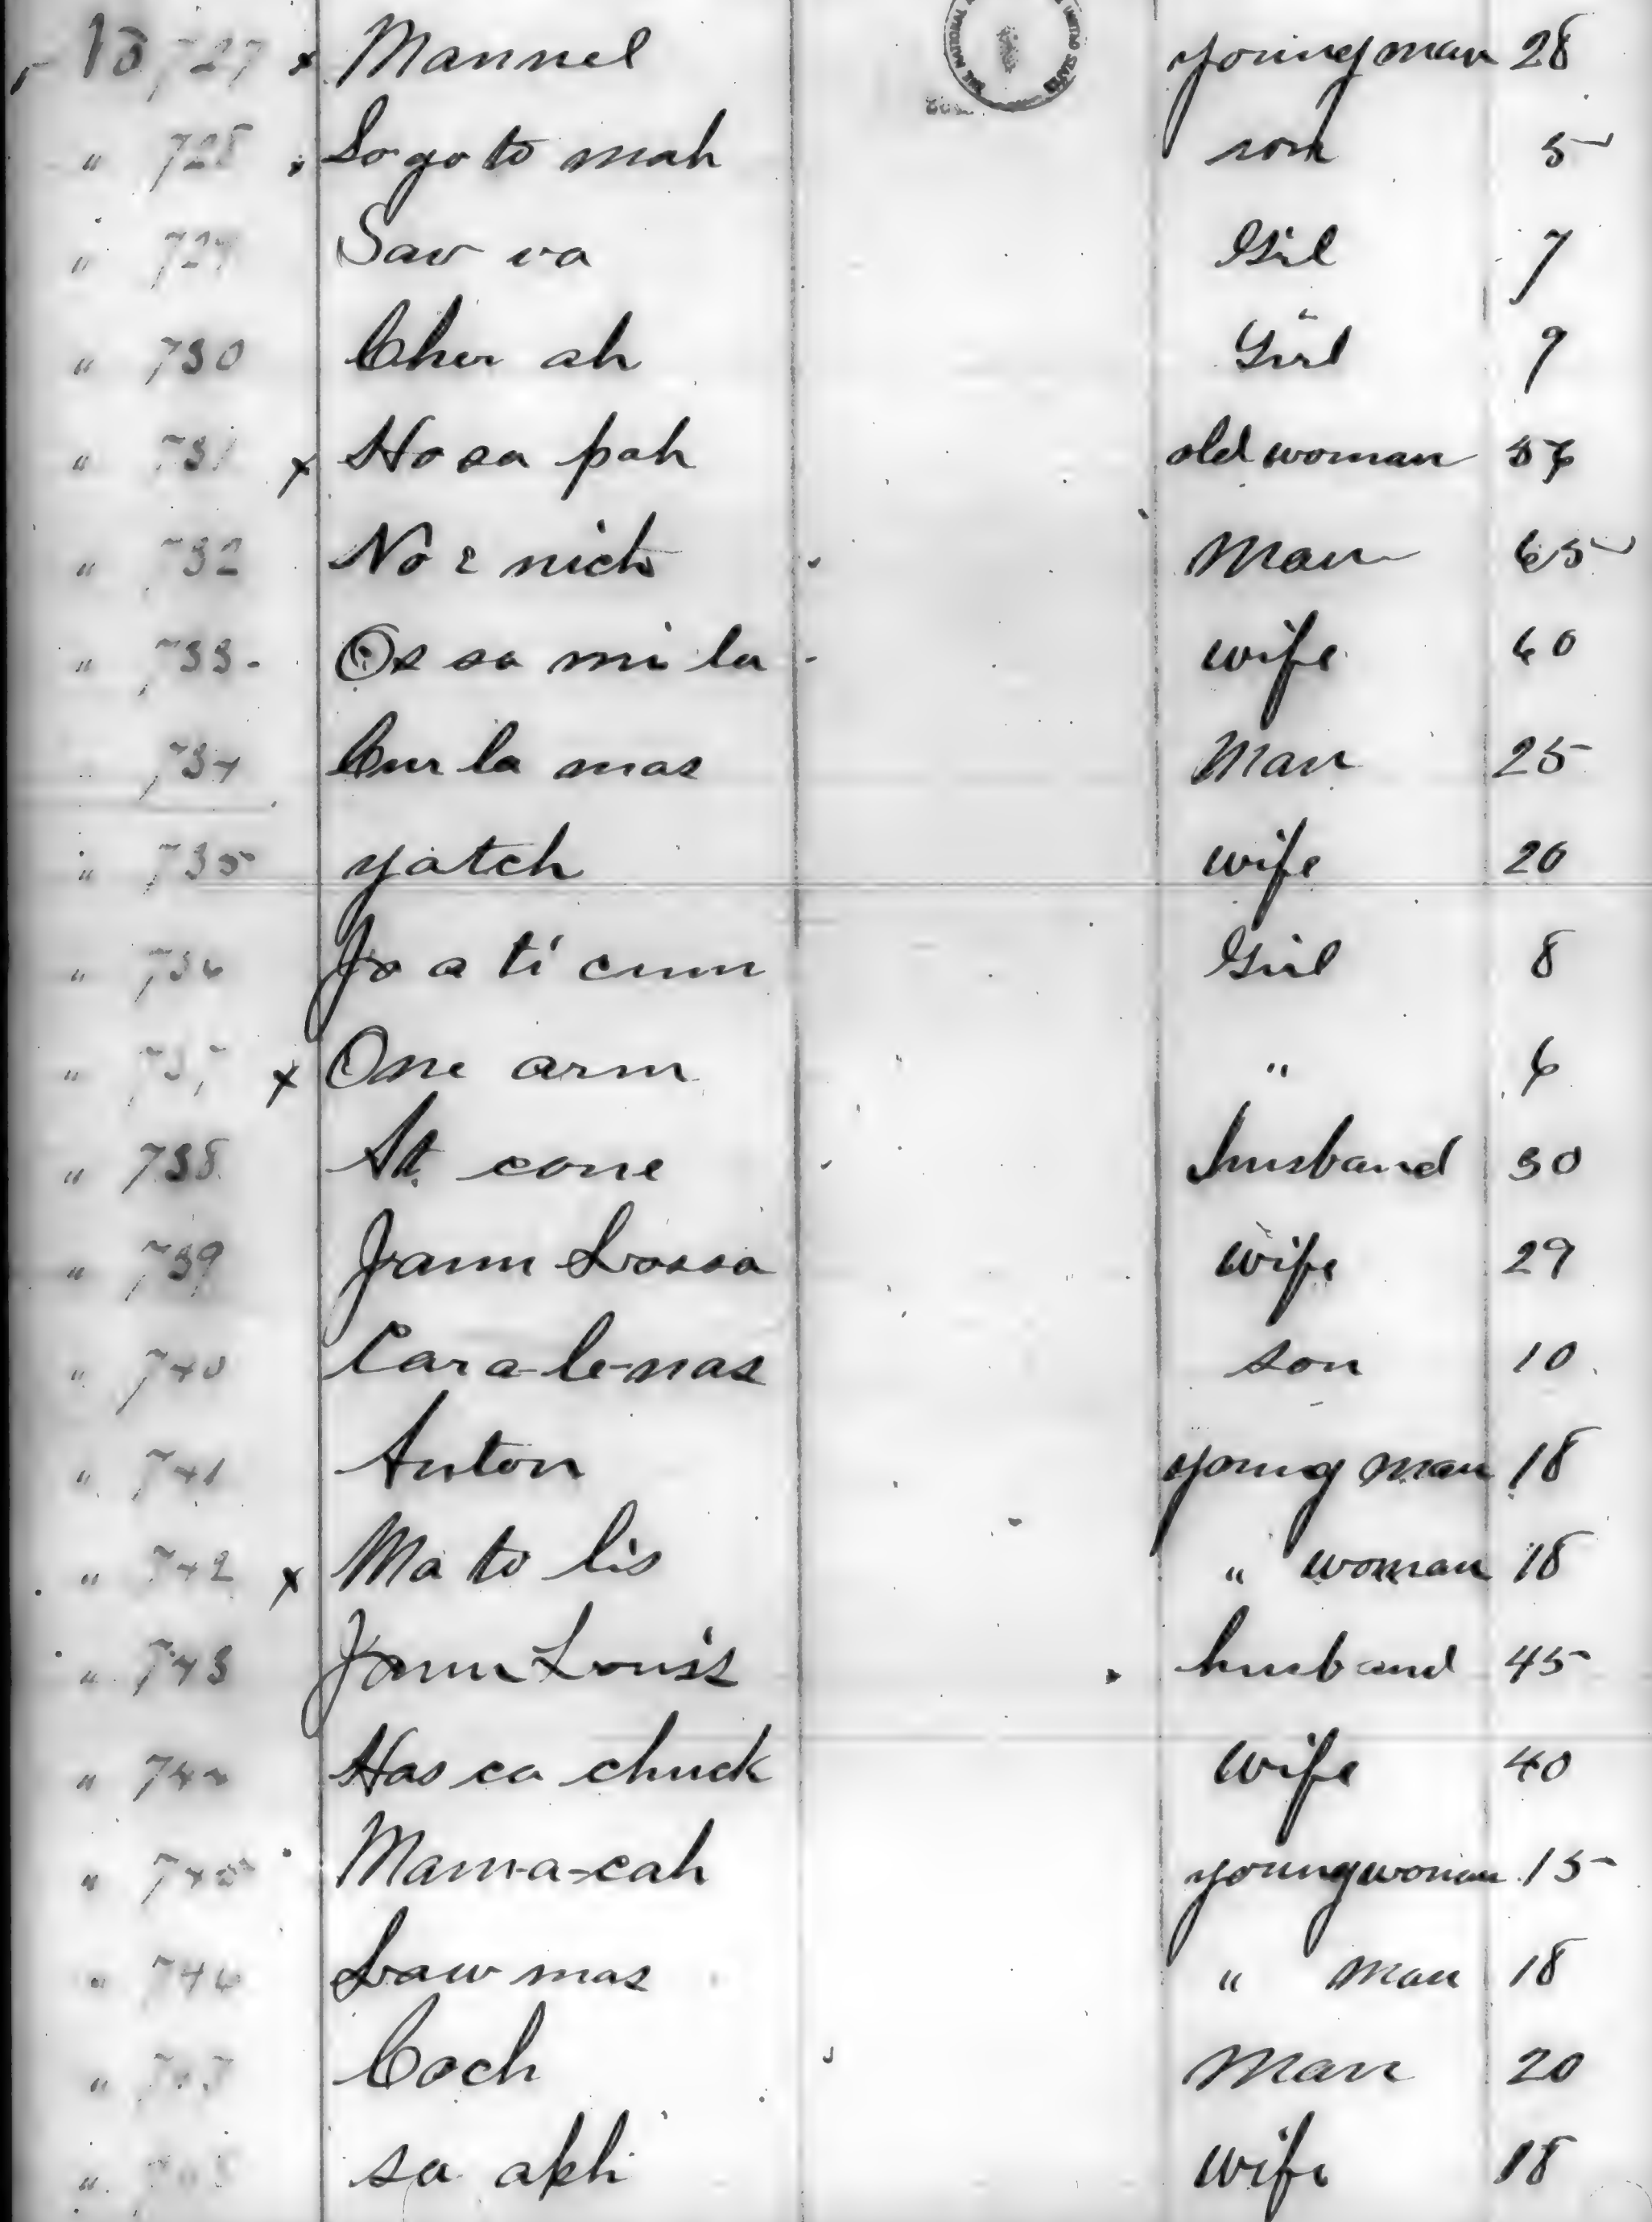 No 727 x Manuel young man 28
" 728 x Logo to mah son 5
" 729 Saw va Girl 7
" 730 Cher ah Girl 9
" 731 x Ho sa pah old woman 56
" 732 No e nich Man 65
" 733 Os sa mi la wife 60
734 Cur la mas Man 25
" 735 yatch wife 20
" 736 Jo a ti cum Girl 8
" 737 x One arm " 6
" 738 St cone husband 30
" 739 Jann Lossa wife 29
" 740 Cara-le-nas son 10
" 741 Anton young man 18
" 742 x Ma to lis " woman 18
" 743 Jann Louis husband 45
" 744 Has ca chuck wife 40
" 745 Mam-a-cah young woman 15
" 746 Law mas " man 18
" 747 Coch Man 20
" 748 sa akh wife 18